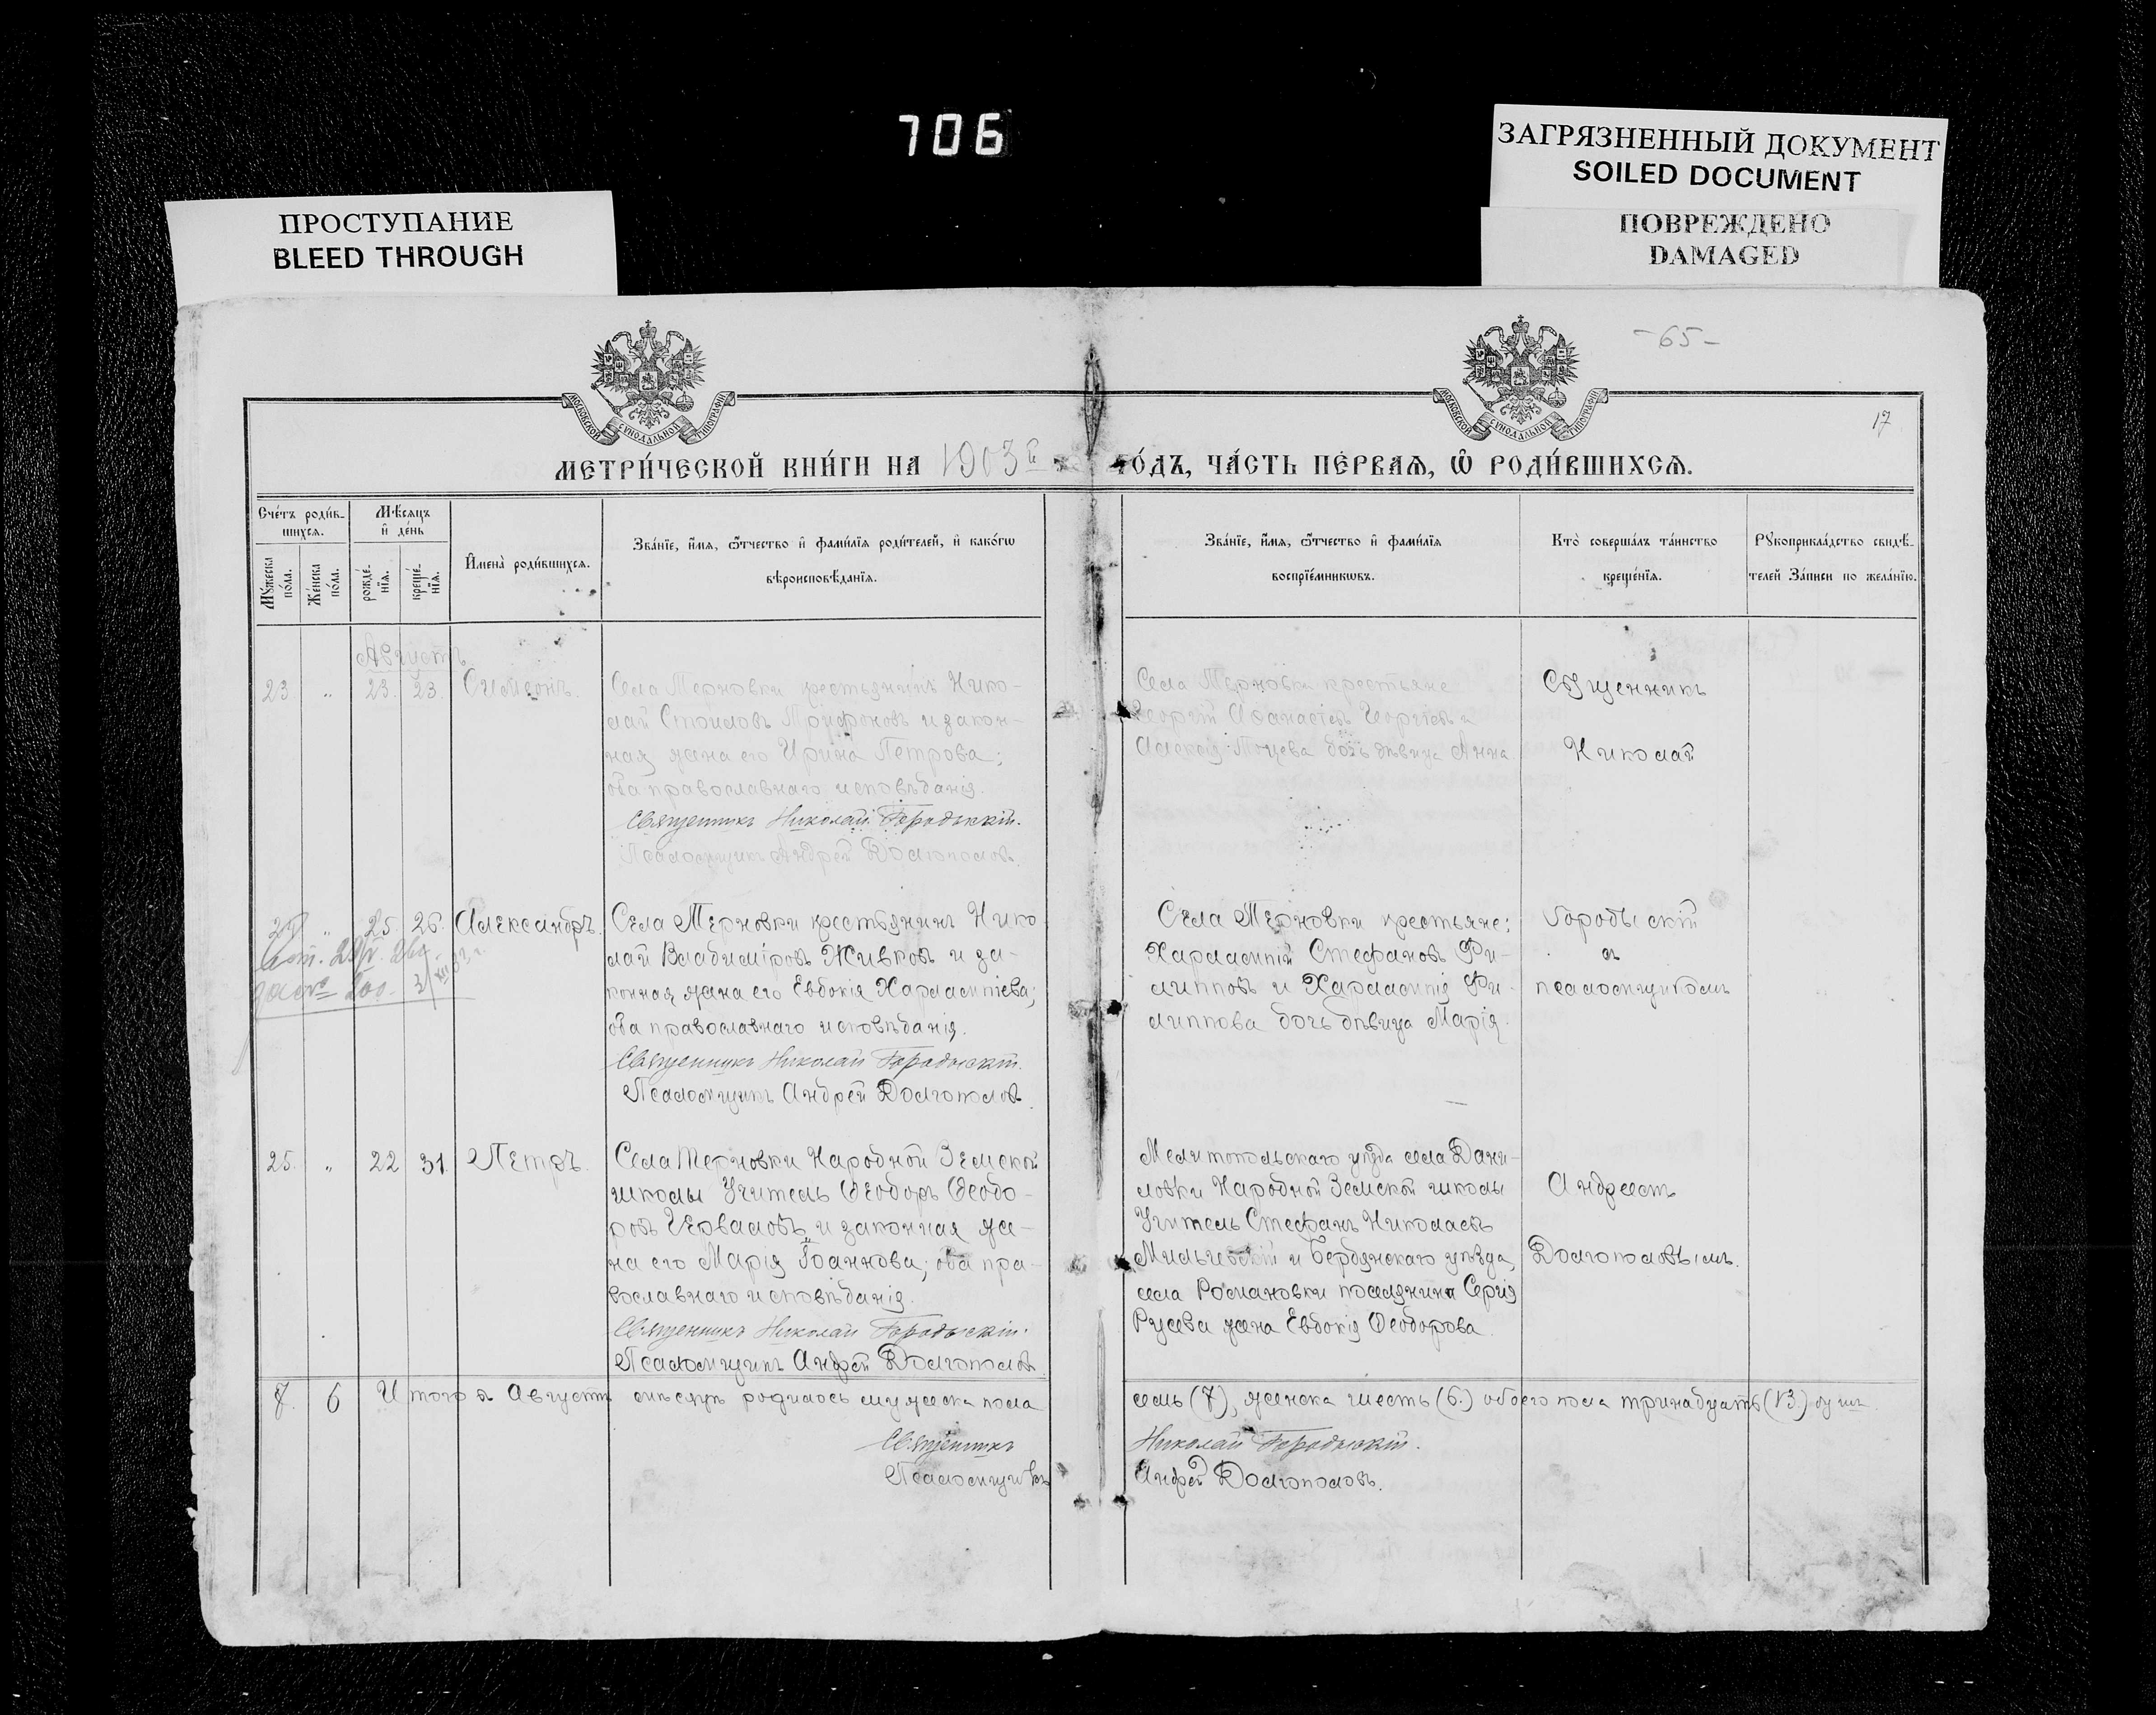 706
ЗАГРЯЗНЕННЫЙ ДОКУМЕНТ
SOILED DOCUMENT
ПОВРЕЖДЕНО
DAMAGED
ПРОСТУПАНИЕ
BLEED THROUGH
-65-
17
МОСКОВСКОЙ СѴНОДАЛЬНОЙ ТИПОГРАФІИ
МОСКОВСКОЙ СѴНОДАЛЬНОЙ ТИПОГРАФІИ
МЕТРИ́ЧЕСКОЙ КНИ́ГИ НА 1903й ГО́ДЪ, ЧА́СТЬ ПЕ́РВАѦ, Ѡ҆ РОДИ́ВШИХСѦ.
Сче́тъ роди́в-
шихсѧ.
Мѣ́сяцъ
и҆ де́нь
Мꙋ́жеска
по́ла.
Же́нска
по́ла.
рожде́-
нїѧ.
креще́-
нїѧ.
И҆мена̀ роди́вшихсѧ.
Зва́нїе, и҆́мѧ, ѻ҆́тчество и҆ фами́лїѧ роди́телей, и҆ како́гѡ
вѣроисповѣ́данїѧ.
Зва́нїе, и҆́мѧ, ѻ҆́тчество и҆ фами́лїѧ
воспрїе́мникѡвъ.
Кто̀ соверша́лъ та́инство
креще́нїѧ.
Рꙋкоприкла́дство свидѣ́-
телей За́писи по жела́нїю.
Августъ
23 „ 23. 23. Симеонъ.
Села Терновки крестьянинъ Нико-
лай Стоиловъ Трифоновъ и закон-
ная жена его Ирина Петрова;
оба православнаго исповѣданія.
Священникъ Николай Городыскій.
Псаломщикъ Андрей Долгополовъ.
Села Терновки крестьяне
Георгій Аѳанасіевъ Георгіевъ и
Алексія дочь дѣвица Анна
Священникъ
Николай
„ 25. 26. Александръ.
Села Терновки крестьянинъ Нико-
лай Владиміровъ Живковъ и за-
конная жена его Евдокія Харлампіева;
оба православнаго исповѣданія.
Священникъ Николай Городыскій.
Псаломщикъ Андрей Долгополовъ.
Села Терновки крестьяне:
Харлампій Стефановъ Фи-
липповъ и Харлампія Фи-
липпова дочь дѣвица Марія.
Городыскій
съ
псаломщикомъ
25. „ 22 31. Петръ.
Села Терновки Народной Земской
школы Учитель Ѳеодоръ Ѳеодо-
ровъ Черваловъ и законная же-
на его Марія Іоаннова; оба пра-
вославнаго исповѣданія.
Священникъ Николай Городыскій.
Псаломщикъ Андрей Долгополовъ
Мелитопольскаго уѣзда села Дани-
ловки Народной Земской школы
Учитель Стефанъ Николаевъ
и Бердянскаго уѣзда,
села Романовки поселянина Сергія
Русева жена Евдокія Ѳеодорова.
Андреемъ
Долгополовымъ.
7. 6 Итого въ Августѣ мѣсяцѣ родилось мужеска пола семь (7), женска шесть (6.) обоего пола тринадцать (13.) душъ.
Священникъ Николай Городыскій.
Псаломщикъ Андрей Долгополовъ.